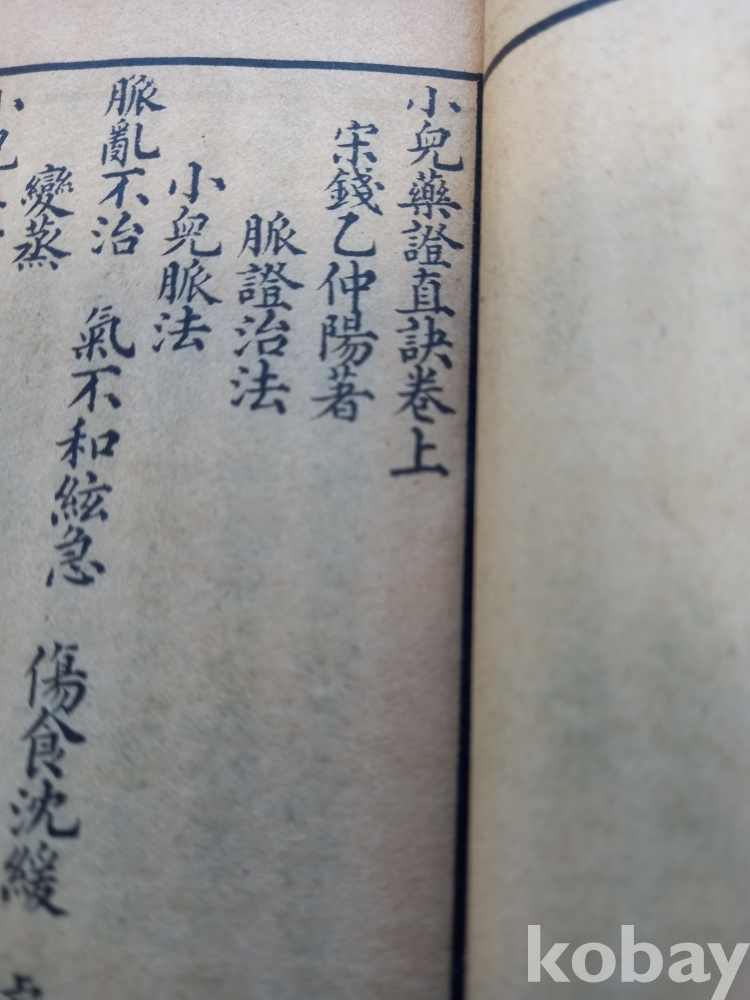 小兒藥證直訣卷上
宋錢乙仲陽著
脈證治法
小兒脈法
脈亂不治 氣不和絃急 傷食沈緩
變蒸
小兒
kobay